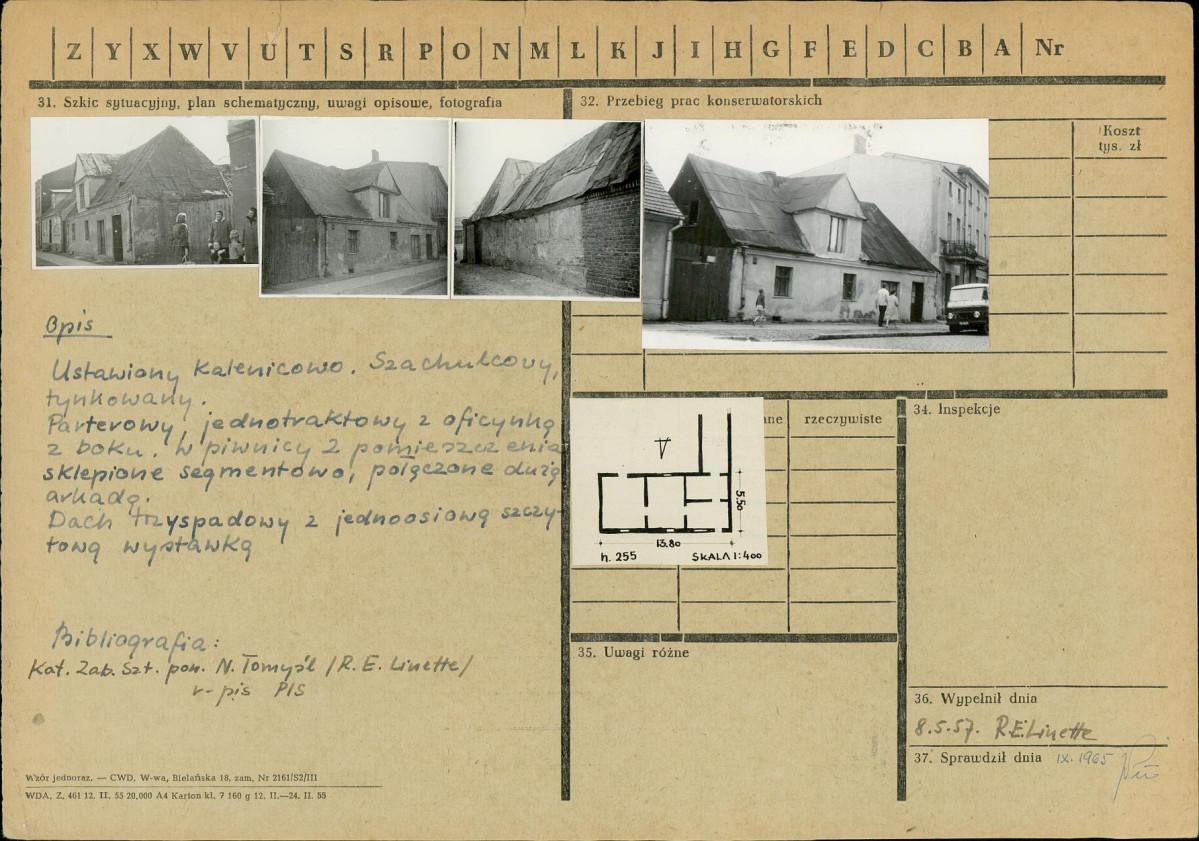 Z Y X W V U T S R P O N M Ł K J I H G F E D C B A Nr
31. Szkic sytuacyjny, plan schematyczny, uwagi opisowe, fotografia
32. Przebieg prac konserwatorskich
Koszt
tys. zł
Opis
Ustawiony kalenicowo. Szachulcowy,
tynkowany.
Parterowy, jednotraktowy z oficynką
z boku. W piwnicy 2 pomieszczenia
sklepione segmentowo, połączone dużą
arkadą.
Dach trzyspadowy z jednoosiową szczy-
tową wystawką
Bibliografia:
Kat. Zab. Szt. pow. N. Tomyśl /R. E. Linette/
r-pis PIS
Wzór jednoraz. — CWD, W-wa, Bielańska 18, zam. Nr 2161/S2/III
WDA. Z. 461 12. II. 55 20,000 A4 Karton kl. 7 160 g 12. II.—24. II. 55
ne
rzeczywiste
5.50
13.80
h. 255 SKALA 1:400
34. Inspekcje
35. Uwagi różne
36. Wypełnił dnia
8.5.57. R.E.Linette
37. Sprawdził dnia IX.1965